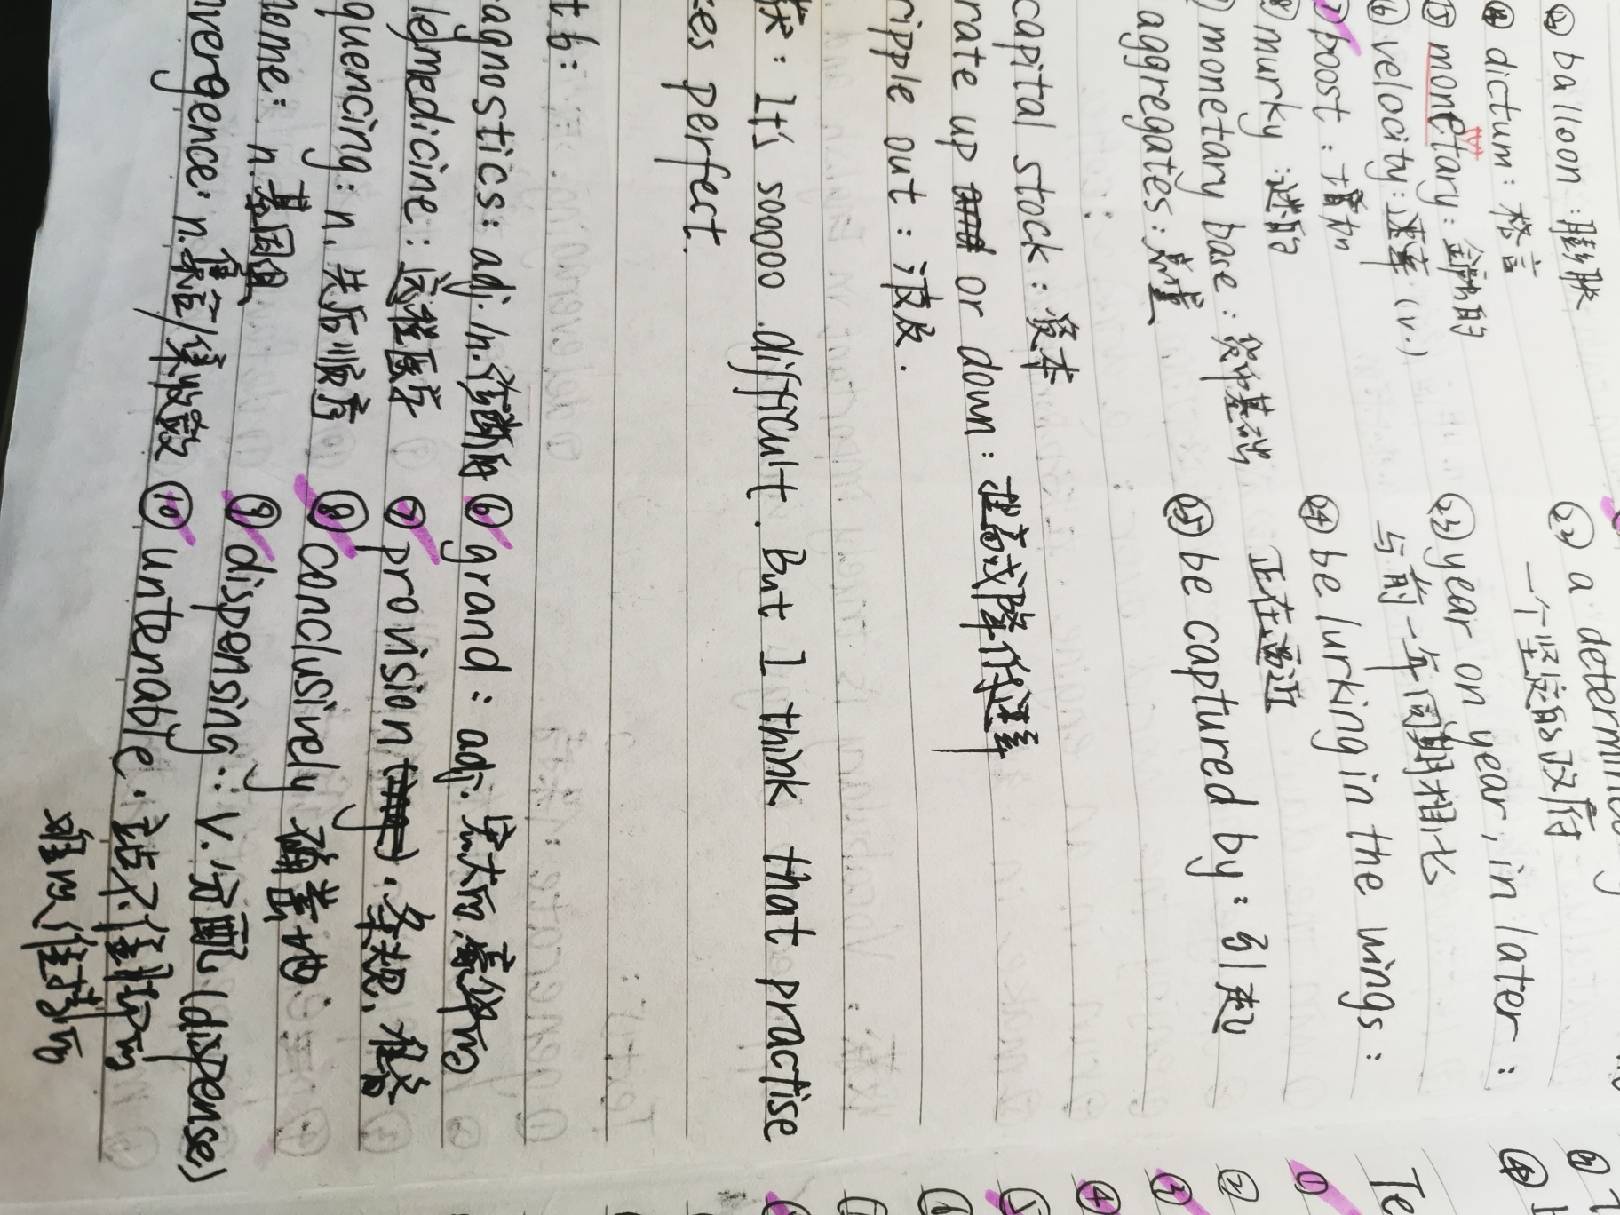 ⑬ balloon：膨胀
⑭ dictum：格言
⑮ monetary：金融的
⑯ velocity：速率（v.）
boost：增加
murky：迷的
monetary base：货币基础
aggregates：总量
㉒ a determined
一个坚定的政府
㉓ year on year, in later：
与前一年同期相比
㉔ be lurking in the wings：
正在逼近
㉕ be captured by：引起
capital stock：资本
rate up or down：提高或降低
ripple out：波及.
It's sooooo difficult. But I think that practise
es perfect.
t 6：
agnostics：adj./n.诊断的
⑥ grand：adj. 宏大的 豪华的
lemedicine：远程医疗
⑦ provision：条款，
quencing：n. 先后顺序
⑧ conclusively 确凿地.
nome：n.基因组
⑨ dispensing：v.分配（dispense）
nvergence：n.集合/集收敛
⑩ untenable.站不住脚的
难以维持的
Te
①
②
③
④
⑤
⑥